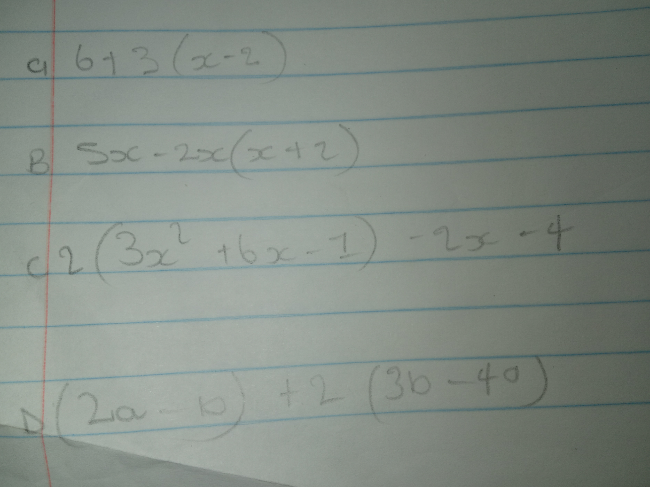 a 6+3(x-2)
B 5x-2x(x+2)
C 2(3x² +6x-1) -2x-4
D (2a-b) +2 (3b-4a)